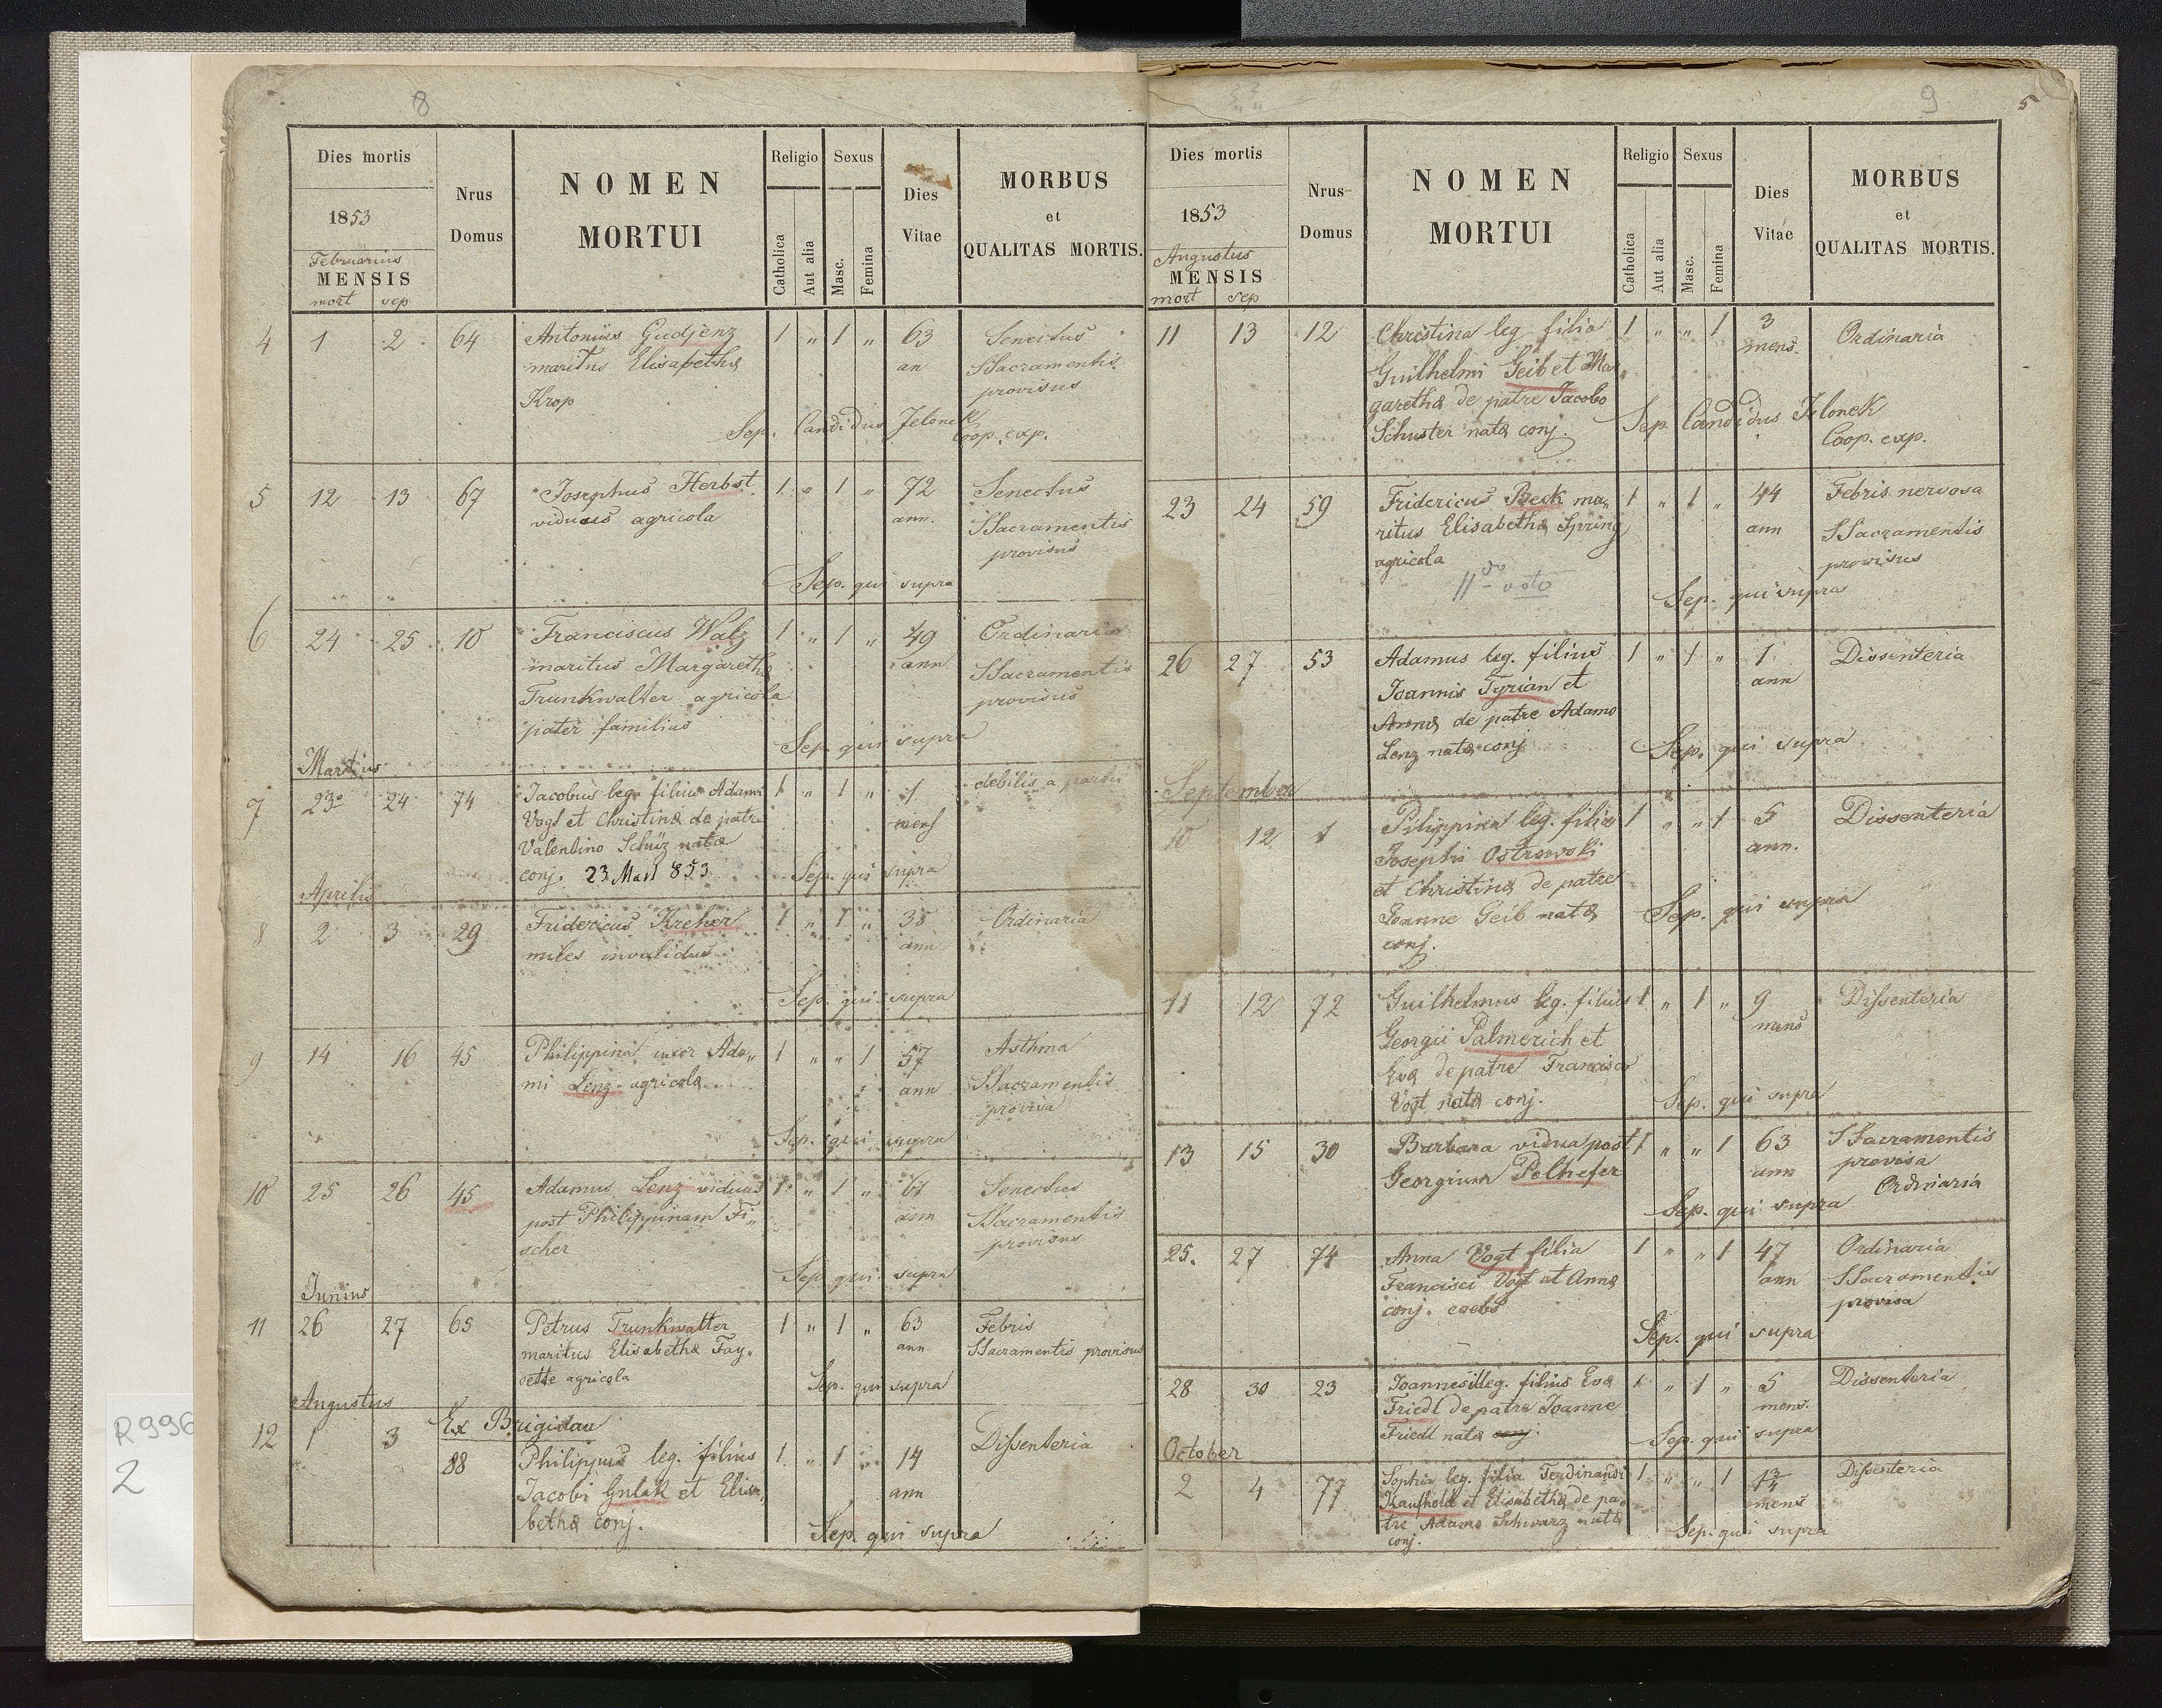 8
Dies mortis
1853
Februarius
MENSIS
mort sep
Nrus
Domus
NOMEN
MORTUI
Religio
Catholica
Aut alia
Sexus
Masc.
Femina
Dies
Vitae
MORBUS
et
QUALITAS MORTIS.
4 1 2 64 Antonius Gudjenz 1 „ 1 „ 63 Senectus
maritus Elisabethæ an SSacramentis
Krop provisus
Sep. Candidus Jelonek
Coop. exp.
5 12 13 67 Josephus Herbst 1 „ 1 „ 72 Senectus
viduus agricola ann. SSacramentis
provisus
Sep. qui supra
6 24 25 10 Franciscus Walz 1 „ 1 „ 49 Ordinaria
maritus Margarethæ ann SSacramentis
Trunkwalter agricola provisus
pater familias
Sep. qui supra
Martius
7 23 24 74 Jacobus leg. filius Adami 1 „ 1 „ 1 debilis a partu
Vogt et Christinæ de patre mens
Valentino Schüz natæ
conj. 23 Mart 853 Sep. qui supra
Aprilis
8 2 3 29 Fridericus Kreher 1 „ 1 „ 38 Ordinaria
miles invalidus ann
Sep. qui supra
9 14 16 45 Philippina uxor Ada„ 1 „ „ 1 57 Asthma
mi Lenz agricolæ ann SSacramentis
provisa
Sep. qui supra
10 25 26 45 Adamus Lenz viduus 1 „ 1 „ 61 Senectus
post Philippinam Fi„ ann SSacramentis
scher provisus
Sep qui supra
Junius
11 26 27 65 Petrus Trunkwalter 1 „ 1 „ 63 Febris
maritus Elisabethæ Fay„ ann SSacramentis provisus
sette agricola Sep. qui supra
Augustus
Ex Brigidau
12 1 3 88 Philippus leg. filius 1 „ 1 „ 14 Dissenteria
Jacobi Gulak et Elisa„ ann
bethæ conj.
Sep. qui supra
9
5
Dies mortis
1853
Augustus
MENSIS
mort sep
Nrus
Domus
NOMEN
MORTUI
Religio
Catholica
Aut alia
Sexus
Masc.
Femina
Dies
Vitae
MORBUS
et
QUALITAS MORTIS.
11 13 12 Christina leg filia 1 „ „ 1 3 Ordinaria
Guilhelmi Geib et Mar mens.
garethæ de patre Jacobo
Schuster natæ conj. Sep Candidus Jelonek
Coop. exp.
23 24 59 Fridericus Beck ma„ 1 „ 1 „ 44 Febris nervosa
ritus Elisabethæ Spring ann SSacramentis
agricola provisus
II do voto
Sep. qui supra
26 27 53 Adamus leg. filius 1 „ 1 „ 1 Dissenteria
Joannis Tyrian et ann
Annæ de patre Adamo
Lenz natæ conj Sep. qui supra
September
10 12 1 Pilippina leg. filia 1 „ „ 1 5 Dissenteria
Josephi Ostrowski ann.
et Christinæ de patre
Joanne Geib natæ Sep. qui supra
conj.
11 12 72 Guilhelmus leg. filius 1 „ 1 „ 9 Dissenteria
Georgii Palmerich et mens
Evæ de patre Francisco
Vogt natæ conj. Sep. qui supra
13 15 30 Barbara vidua post 1 „ „ 1 63 SSacramentis
Georgium Polhefer ann provisa
Ordinaria
Sep. qui supra
25. 27 74 Anna Vogt filia 1 „ „ 1 47 Ordinaria
Francisci Vogt et Annæ ann SSacramentis
conj. caebs provisa
Sep. qui supra
28 30 23 Joannes illeg. filius Evæ 1 „ 1 „ 5 Dissenteria
Friedl de patre Joanne mens.
Friedl natæ conj. Sep. qui supra
October
2 4 77 Sophia leg. filia Ferdinandi 1 „ „ 1 Dissenteria
Kaufhold et Elisabethæ de pa„ mens
tre Adamo Schwarz natæ
conj. Sep. qui supra
R996
2